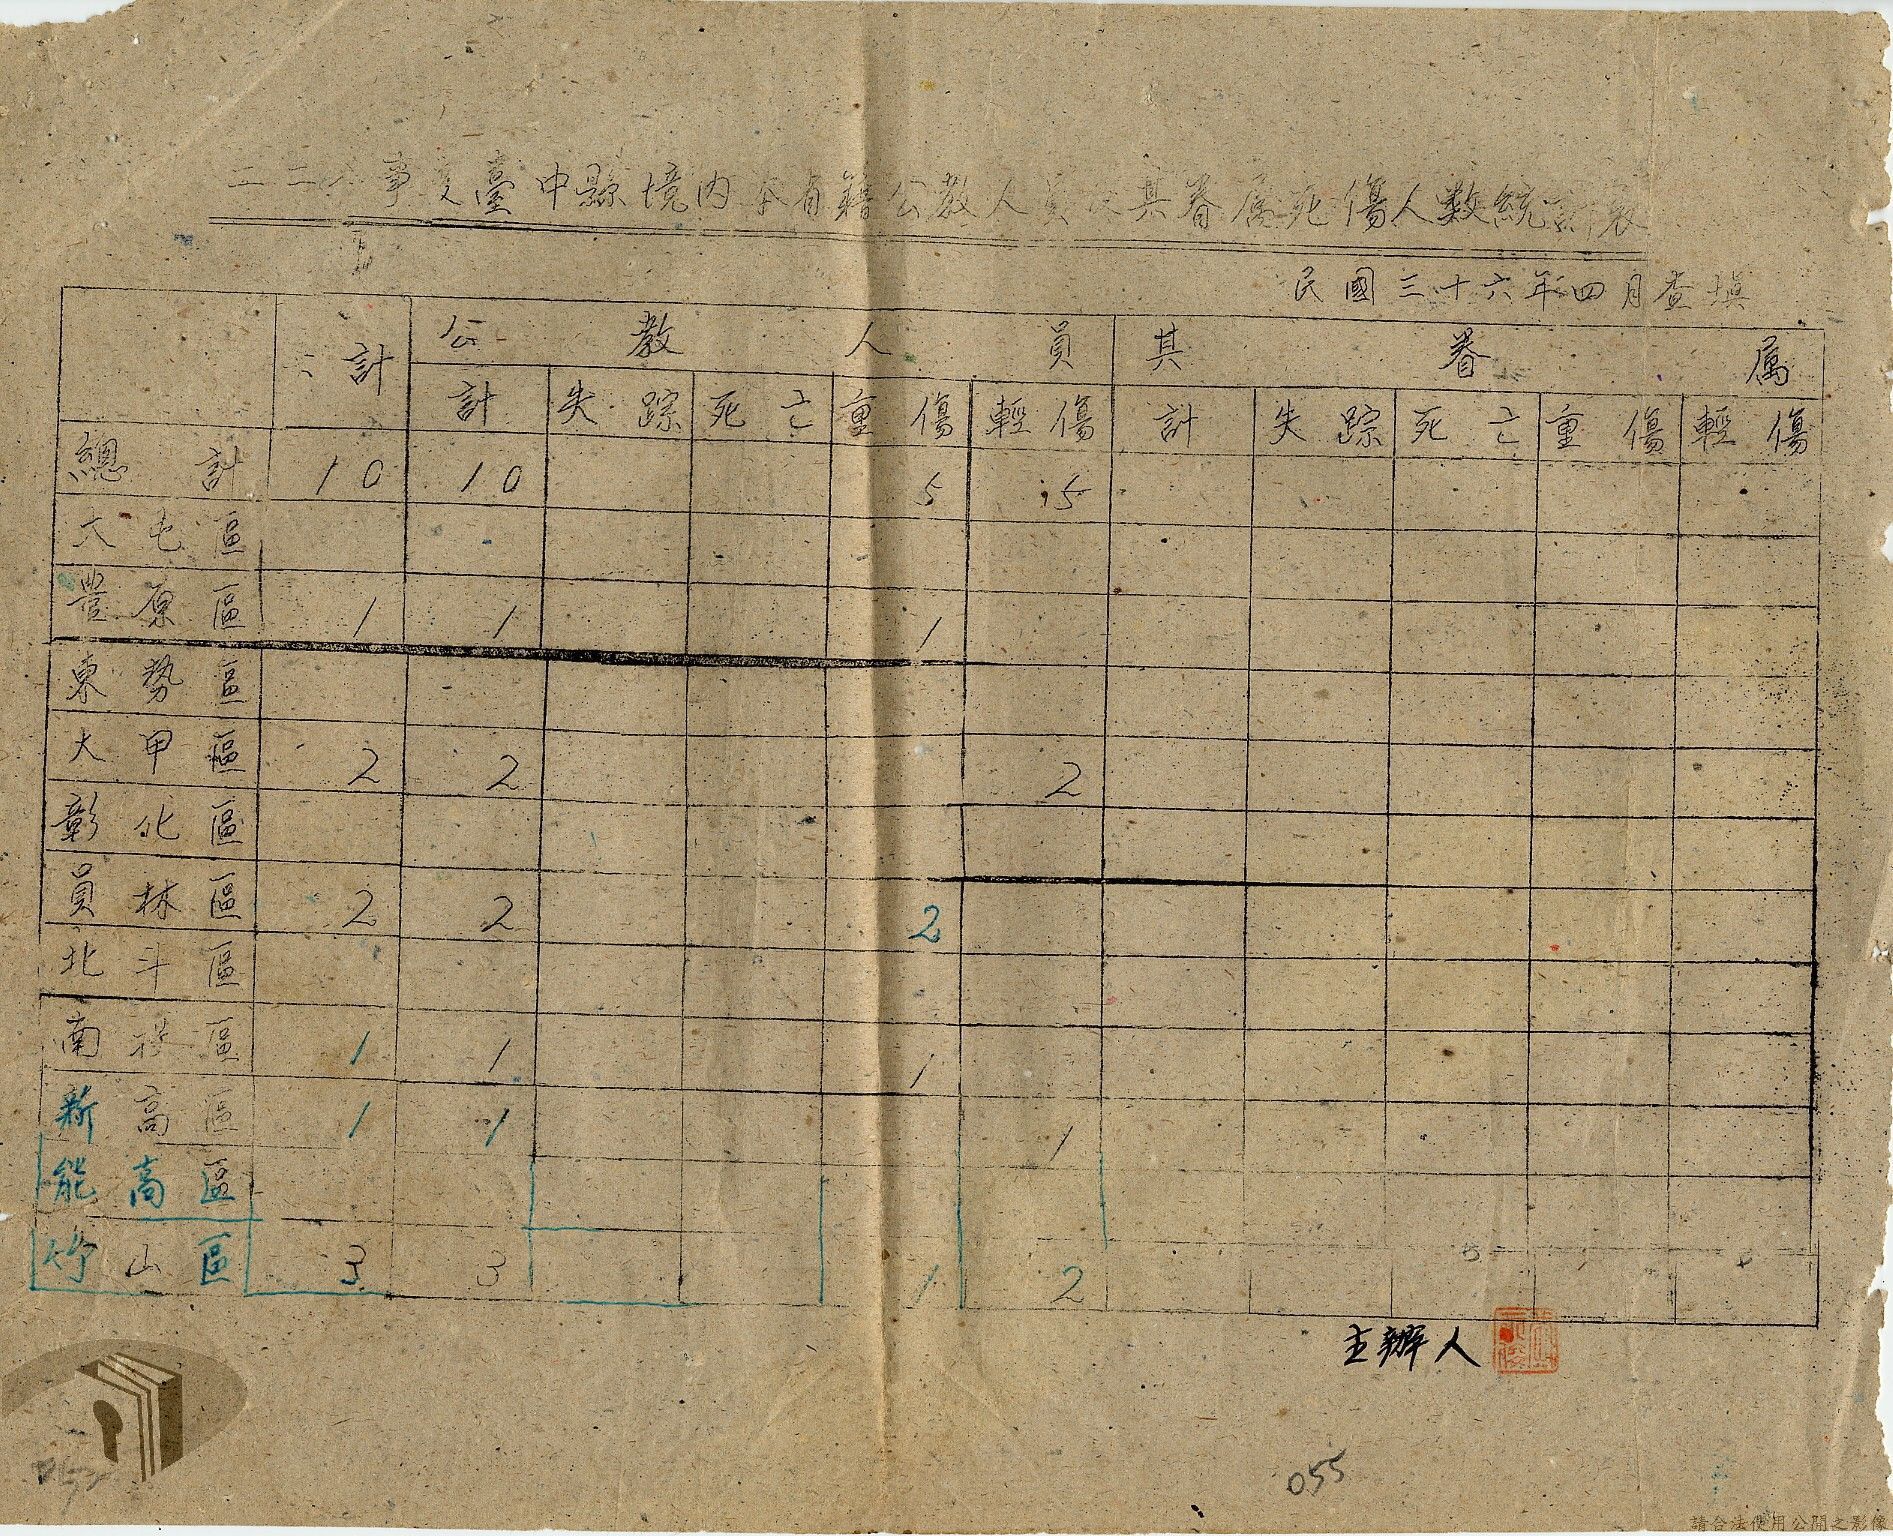 二二八事變臺中縣境內本省籍公教人員及其眷屬死傷人数統計表
民國三十六年四月查填
計 公教人員 其眷属
計 失踪 死亡 重傷 輕傷 計 失踪 死亡 重傷 輕傷
總計 10 10 5 5
大屯區
豐原區 1 1 1
東勢區
大甲區 2 2 2
彰化區
員林區 2 2 2
北斗區
南投區 1 1 1
新高區 1 1 1
能高區
竹山區 3 3 1 2
主辦人
055
請合法使用公開之影像